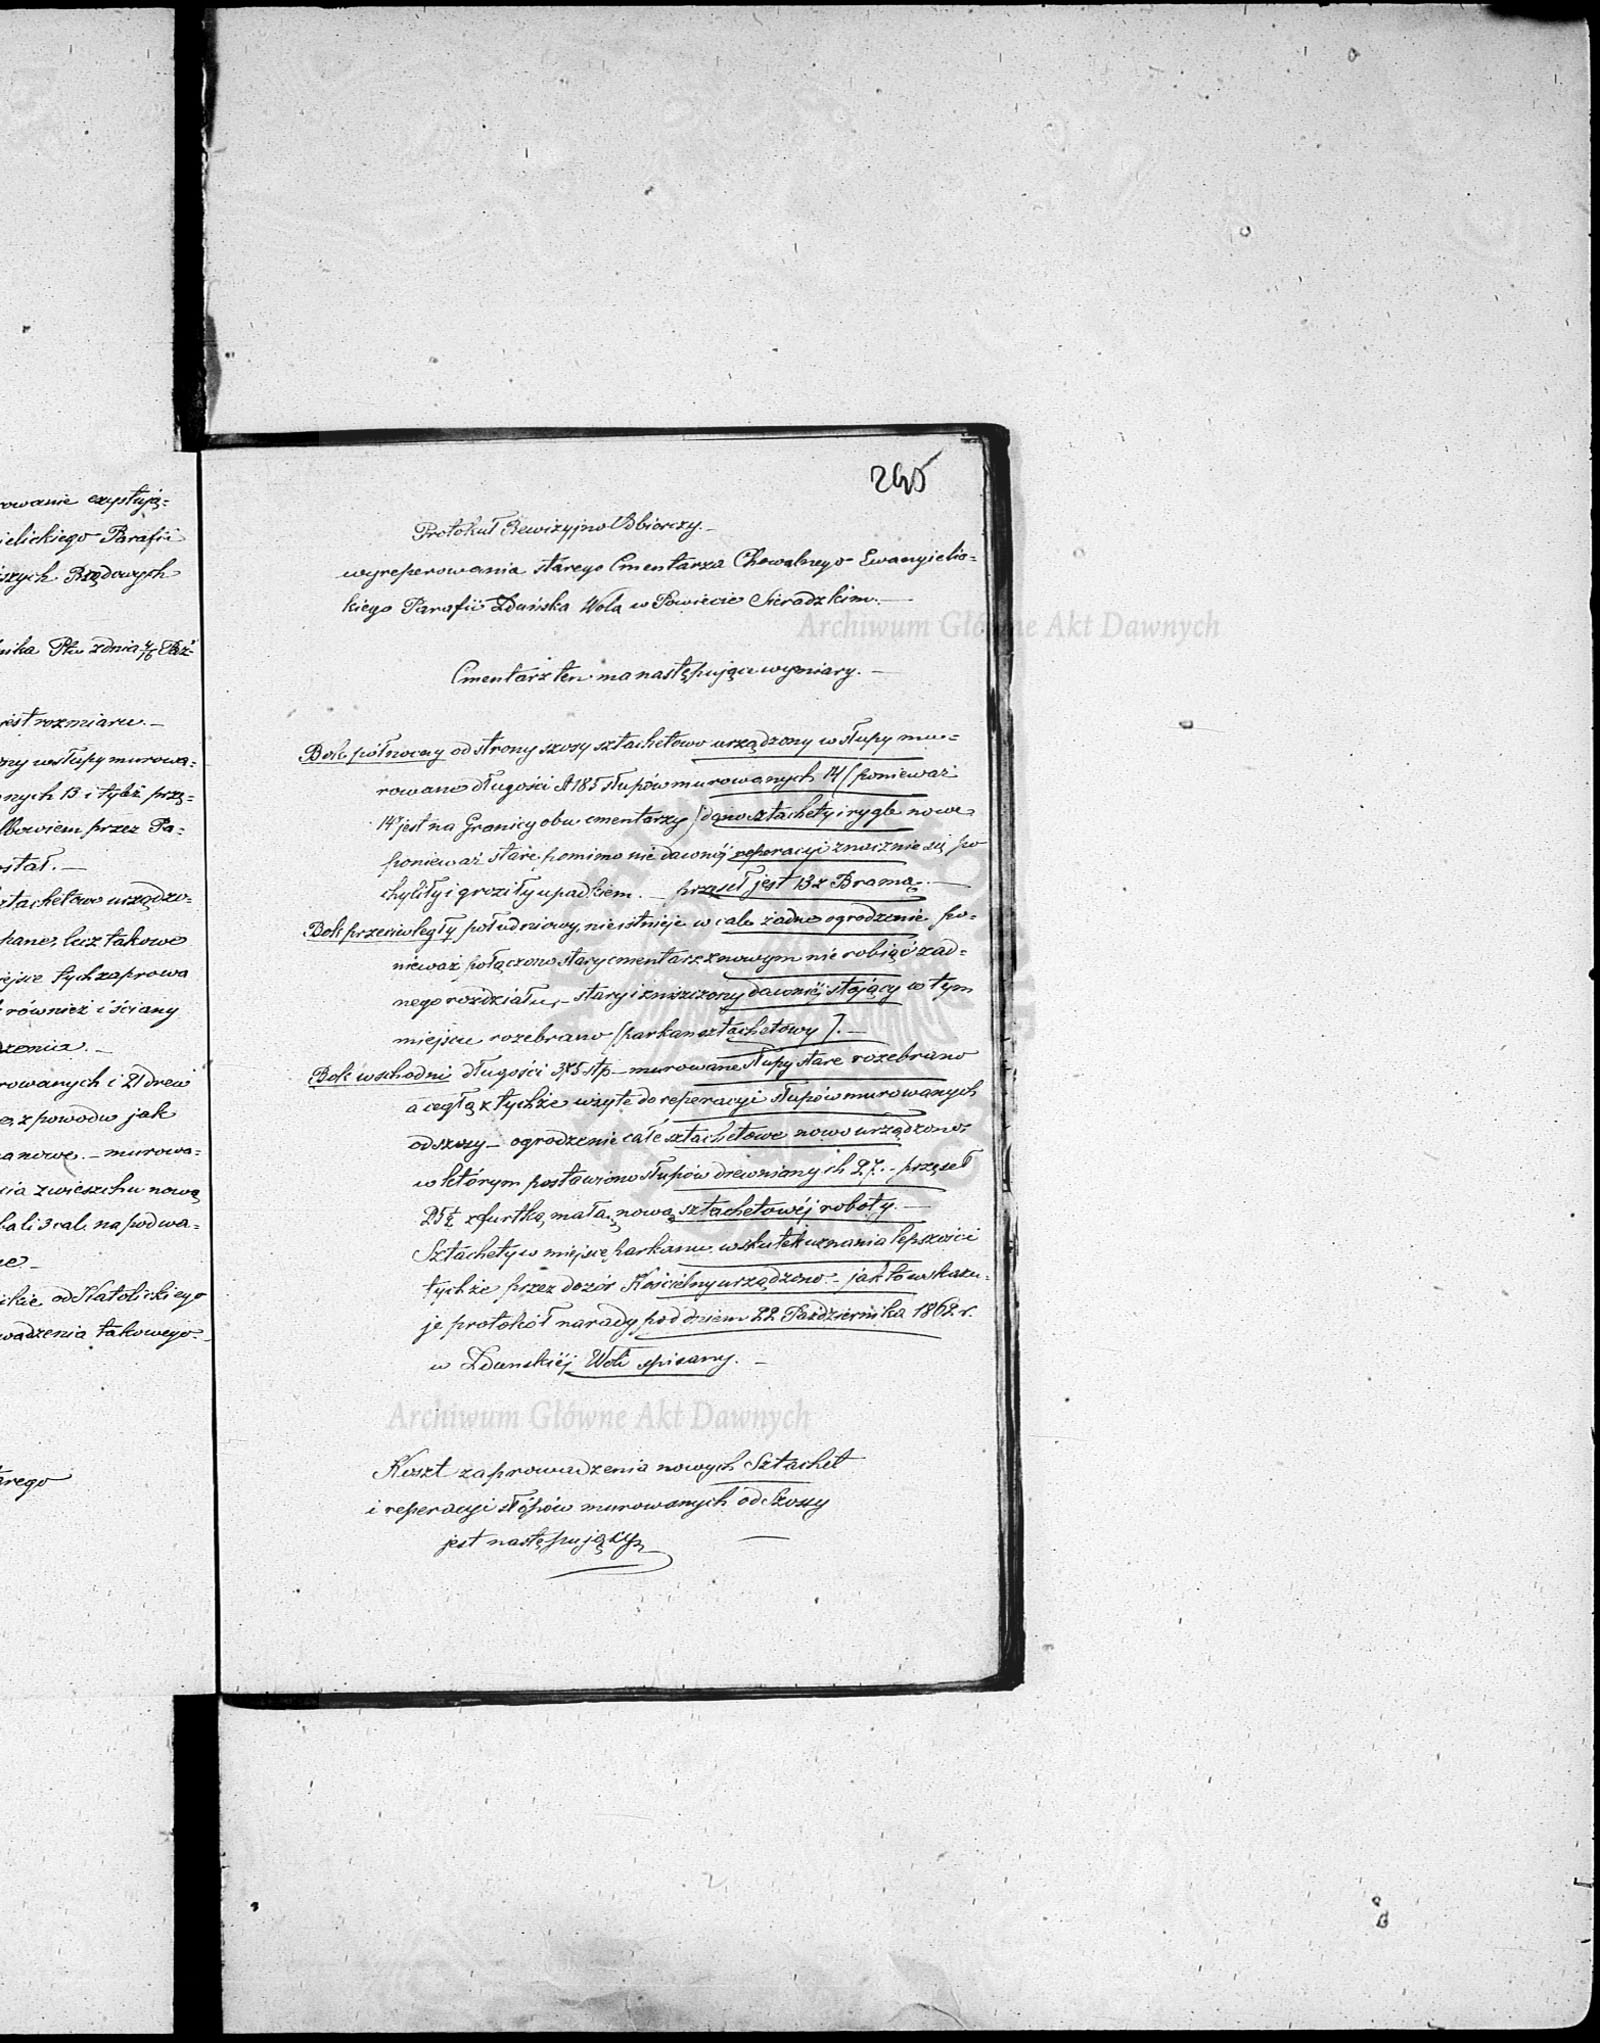 rowanie exystują=
ielickiego Parafii
szych Rządowych
nika Ptu z dnia 4/16 Paź
jest rozmiaru. —
ny w słupy murowa=
nych 13 i tyleż przę=
lbowiem przez Pa=
ostał. —
ztachetowe urządzo=
pane, lecz takowe
iejsce tych zaprowa
również i ściany
dzenia. —
rowanych i 21 drew
z powodu jak
a nowe. — murowa=
cia z wierzchu nową
cali 3 cal. na podwa=
ne —
ickie od Katolickiego
wadzenia takowego. —
arego
245
Protokuł Rewizyjno Odbiorczy. —
wyreperowania starego Cmentarza Chowalnego Ewangielic=
kiego Parafii Zduńska Wola w Powiecie Sieradzkim. —
Cmentarz ten ma następujące wymiary. —
Bok północny od strony szosy sztachetowo urządzony w słupy mu=
rowane długości st 185 słupów murowanych 14 (ponieważ
14ty jest na Granicy obu cmentarzy) dano sztachety i rygle nowe
ponieważ stare pomimo nie dawnéj reperacyi znacznie się po
chyliły i groziły upadkiem. — przęseł jest 13 z Bramą. —
Bok przeciwległy południowy, nie istnieje w cale żadne ogrodzenie po=
nieważ połączono stary cmentarz z nowym nie robiąc żad=
nego rozdziału, — stary i zniszczony dawniéj stojący w tym
miejscu rozebrano [parkan sztachetowy]. —
Bok wschodni długości 375 stp — murowane słupy stare rozebrano
a cegłą z tychże użyte do reperacyi słupów murowanych
od szosy — ogrodzenie całe sztachetowe nowo urządzono,
w którym postawiono słupów drewnianych 27. — przęseł
25½ z furtką małą, nową sztachetowéj roboty. —
Sztachety w miejscę parkanu w skutek uznania lepszości
tychże przez dozór Kościelny urządzono — jak to wskazu=
je protokół narady pod dniem 22 Października 1862 r.
w Zduńskiéj Woli spisany. —
Koszt zaprowadzenia nowych Sztachet
i reperacyi słópów murowanych od Szosy
jest następujący —
Archiwum Główne Akt Dawnych
Archiwum Główne Akt Dawnych